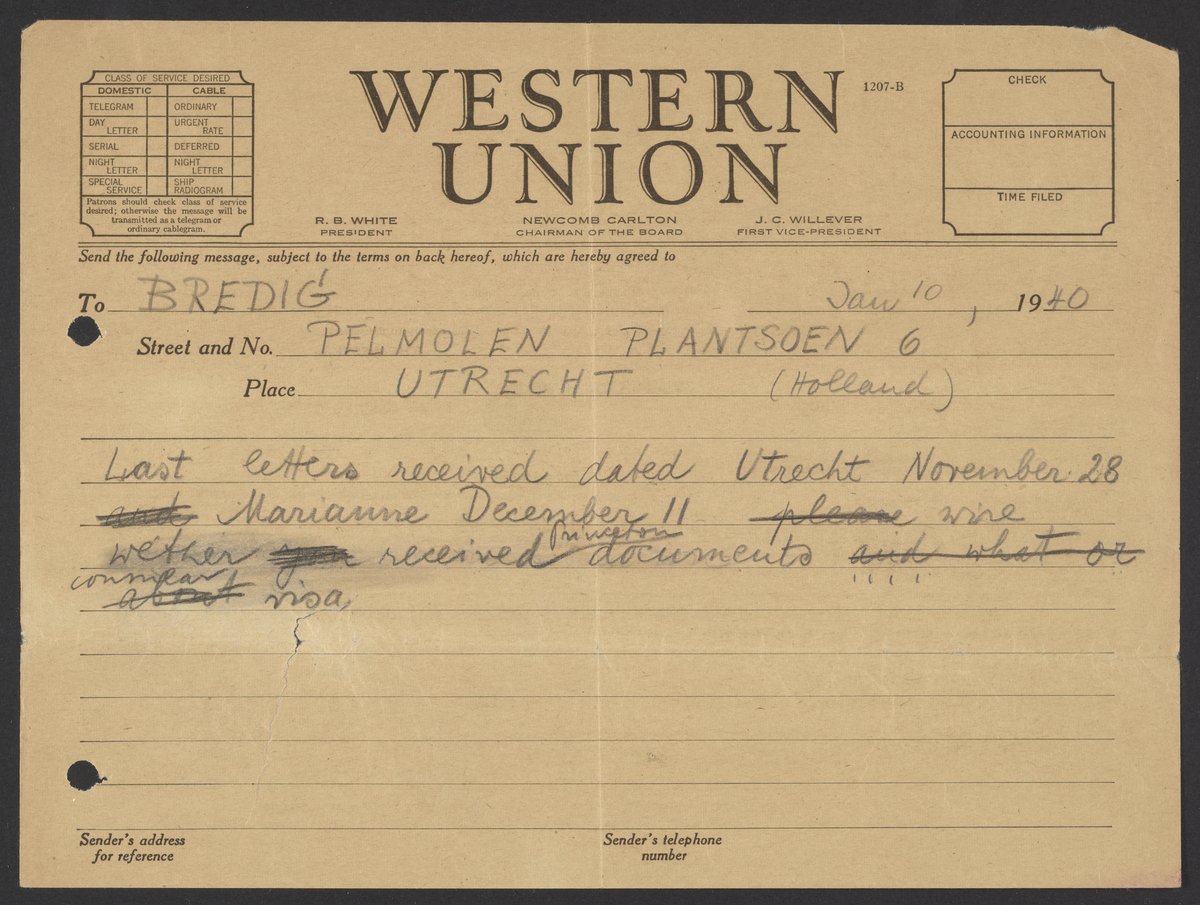 CLASS OF SERVICE DESIRED
DOMESTIC CABLE
TELEGRAM ORDINARY
DAY LETTER URGENT RATE
SERIAL DEFERRED
NIGHT LETTER NIGHT LETTER
SPECIAL SERVICE SHIP RADIOGRAM
Patrons should check class of service
desired; otherwise the message will be
transmitted as a telegram or
ordinary cablegram.
WESTERN
UNION
1207-B
R. B. WHITE
PRESIDENT
NEWCOMB CARLTON
CHAIRMAN OF THE BOARD
J. C. WILLEVER
FIRST VICE-PRESIDENT
CHECK
ACCOUNTING INFORMATION
TIME FILED
Send the following message, subject to the terms on back hereof, which are hereby agreed to
To BREDIG Jan 10, 1940
Street and No. PELMOLEN PLANTSOEN 6
Place UTRECHT (Holland)
Last letters received dated Utrecht November 28
and Marianne December 11 please wire
wether you received Princeton documents and what or
about visa
Sender's address
for reference
Sender's telephone
number